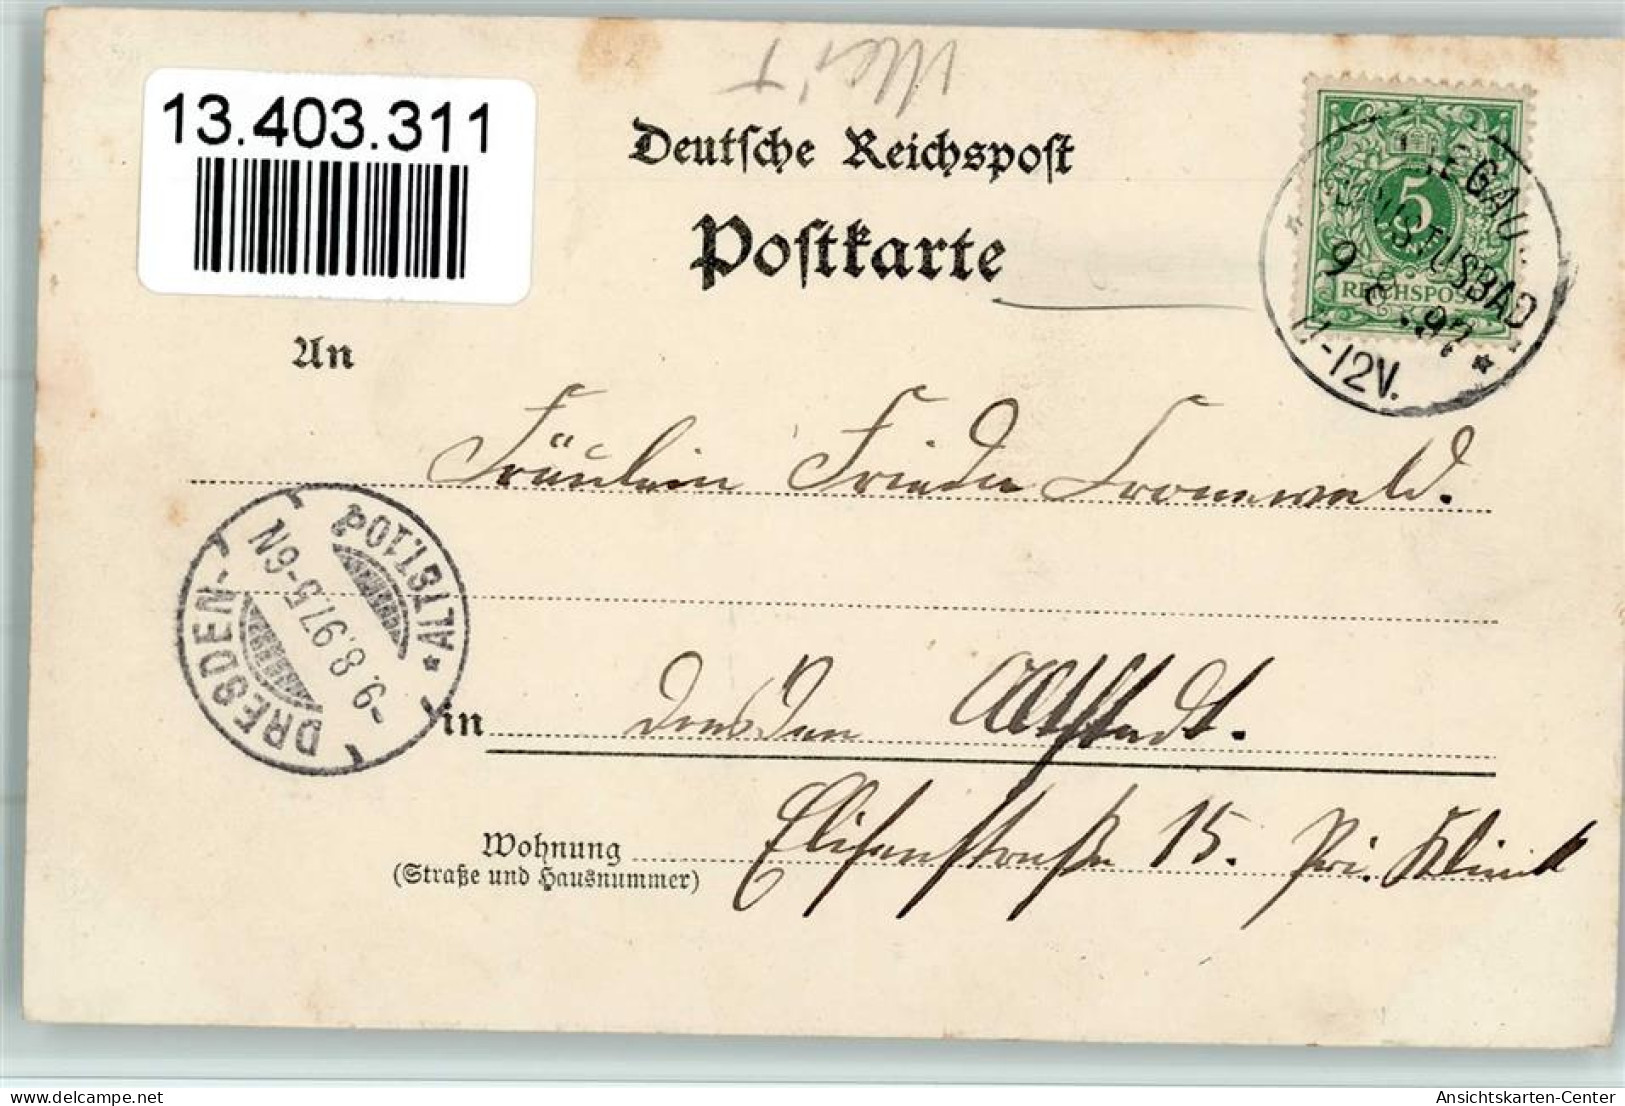 13.403.311
Deutsche Reichspost
Postkarte
5
REICHSPOST
9 8 97
11-12V.
An
Fräulein Frieda Cronewald.
DRESDEN-ALTST.10d
-9.8.97.5-6N
in Dresden Altstadt.
Wohnung
(Straße und Hausnummer)
Elisenstraße 15. Pri. Klinik
Ansichtskarten-Center